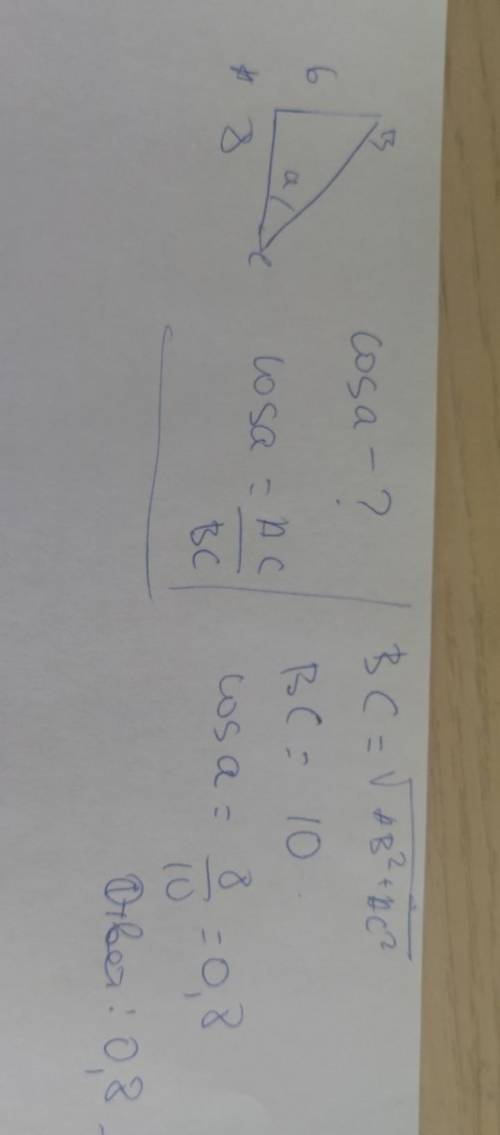 B
6
A 8 a C
cos a - ?
cos a = AC / BC
BC = √AB² + AC²
BC = 10
cos a = 8 / 10 = 0,8
Ответ: 0,8